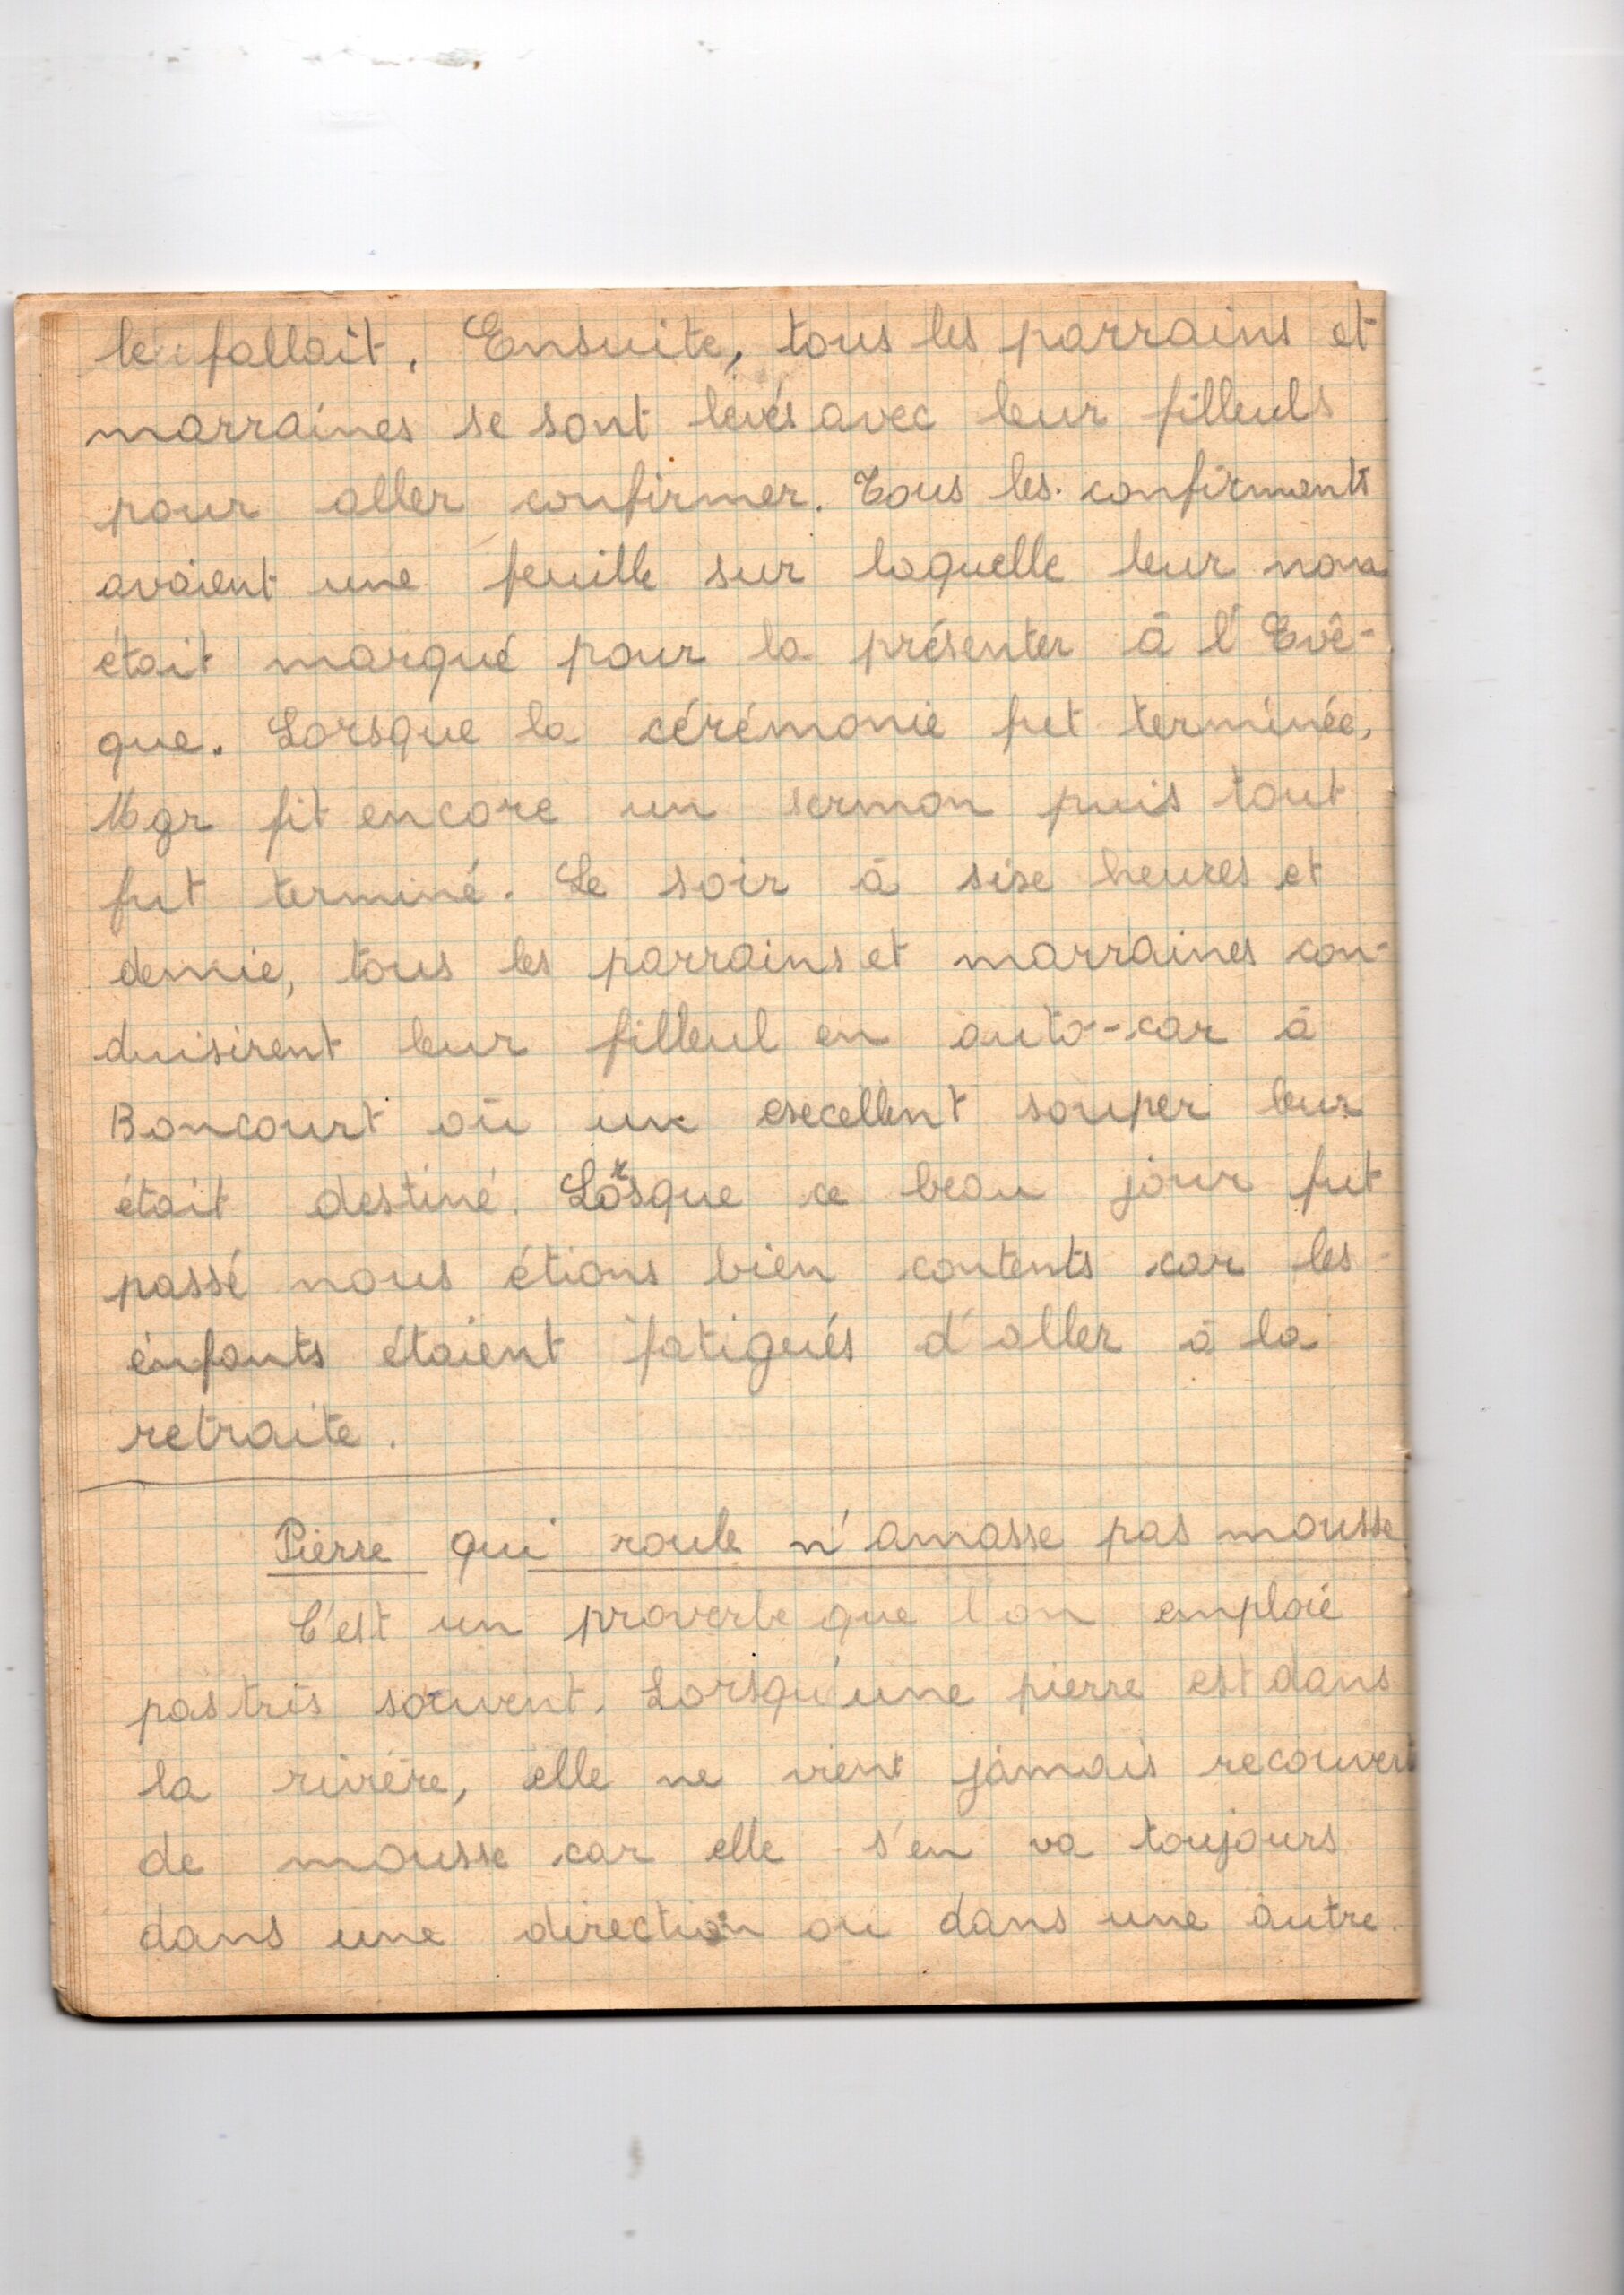 le fallait. Ensuite, tous les parrains et
marraines se sont levés avec leur filleuls
pour aller confirmer. Tous les confirmants
avaient une feuille sur laquelle leur nom
était marqué pour la présenter à l'Evê-
que. Lorsque la cérémonie fut terminée,
Mgr fit encore un sermon puis tout
fut terminé. Le soir à six heures et
demie, tous les parrains et marraines con-
duisirent leur filleul en auto-car à
Boncourt où un excellent souper leur
était destiné. Lorsque ce beau jour fut
passé nous étions bien contents car les
enfants étaient fatigués d'aller à la
retraite.
Pierre qui roule n'amasse pas mousse
C'est un proverbe que l'on emploie
pas très souvent. Lorsqu'une pierre est dans
la rivière, elle ne vient jamais recouvert
de mousse car elle s'en va toujours
dans une direction ou dans une autre.